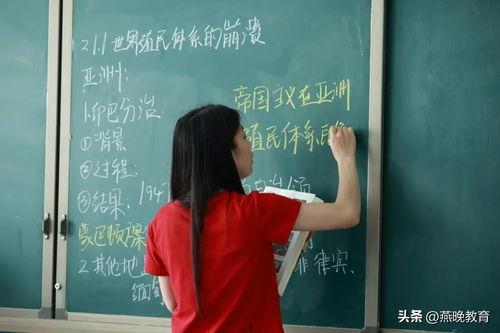 21.1 世界殖民体系的崩溃
亚洲:
1.印巴分治
①背景
②过程:
③结果: 1947
蒙巴顿方案
2.其他地
缅
菲律宾.
帝国主义在亚洲
殖民体系
头条 @燕晚教育